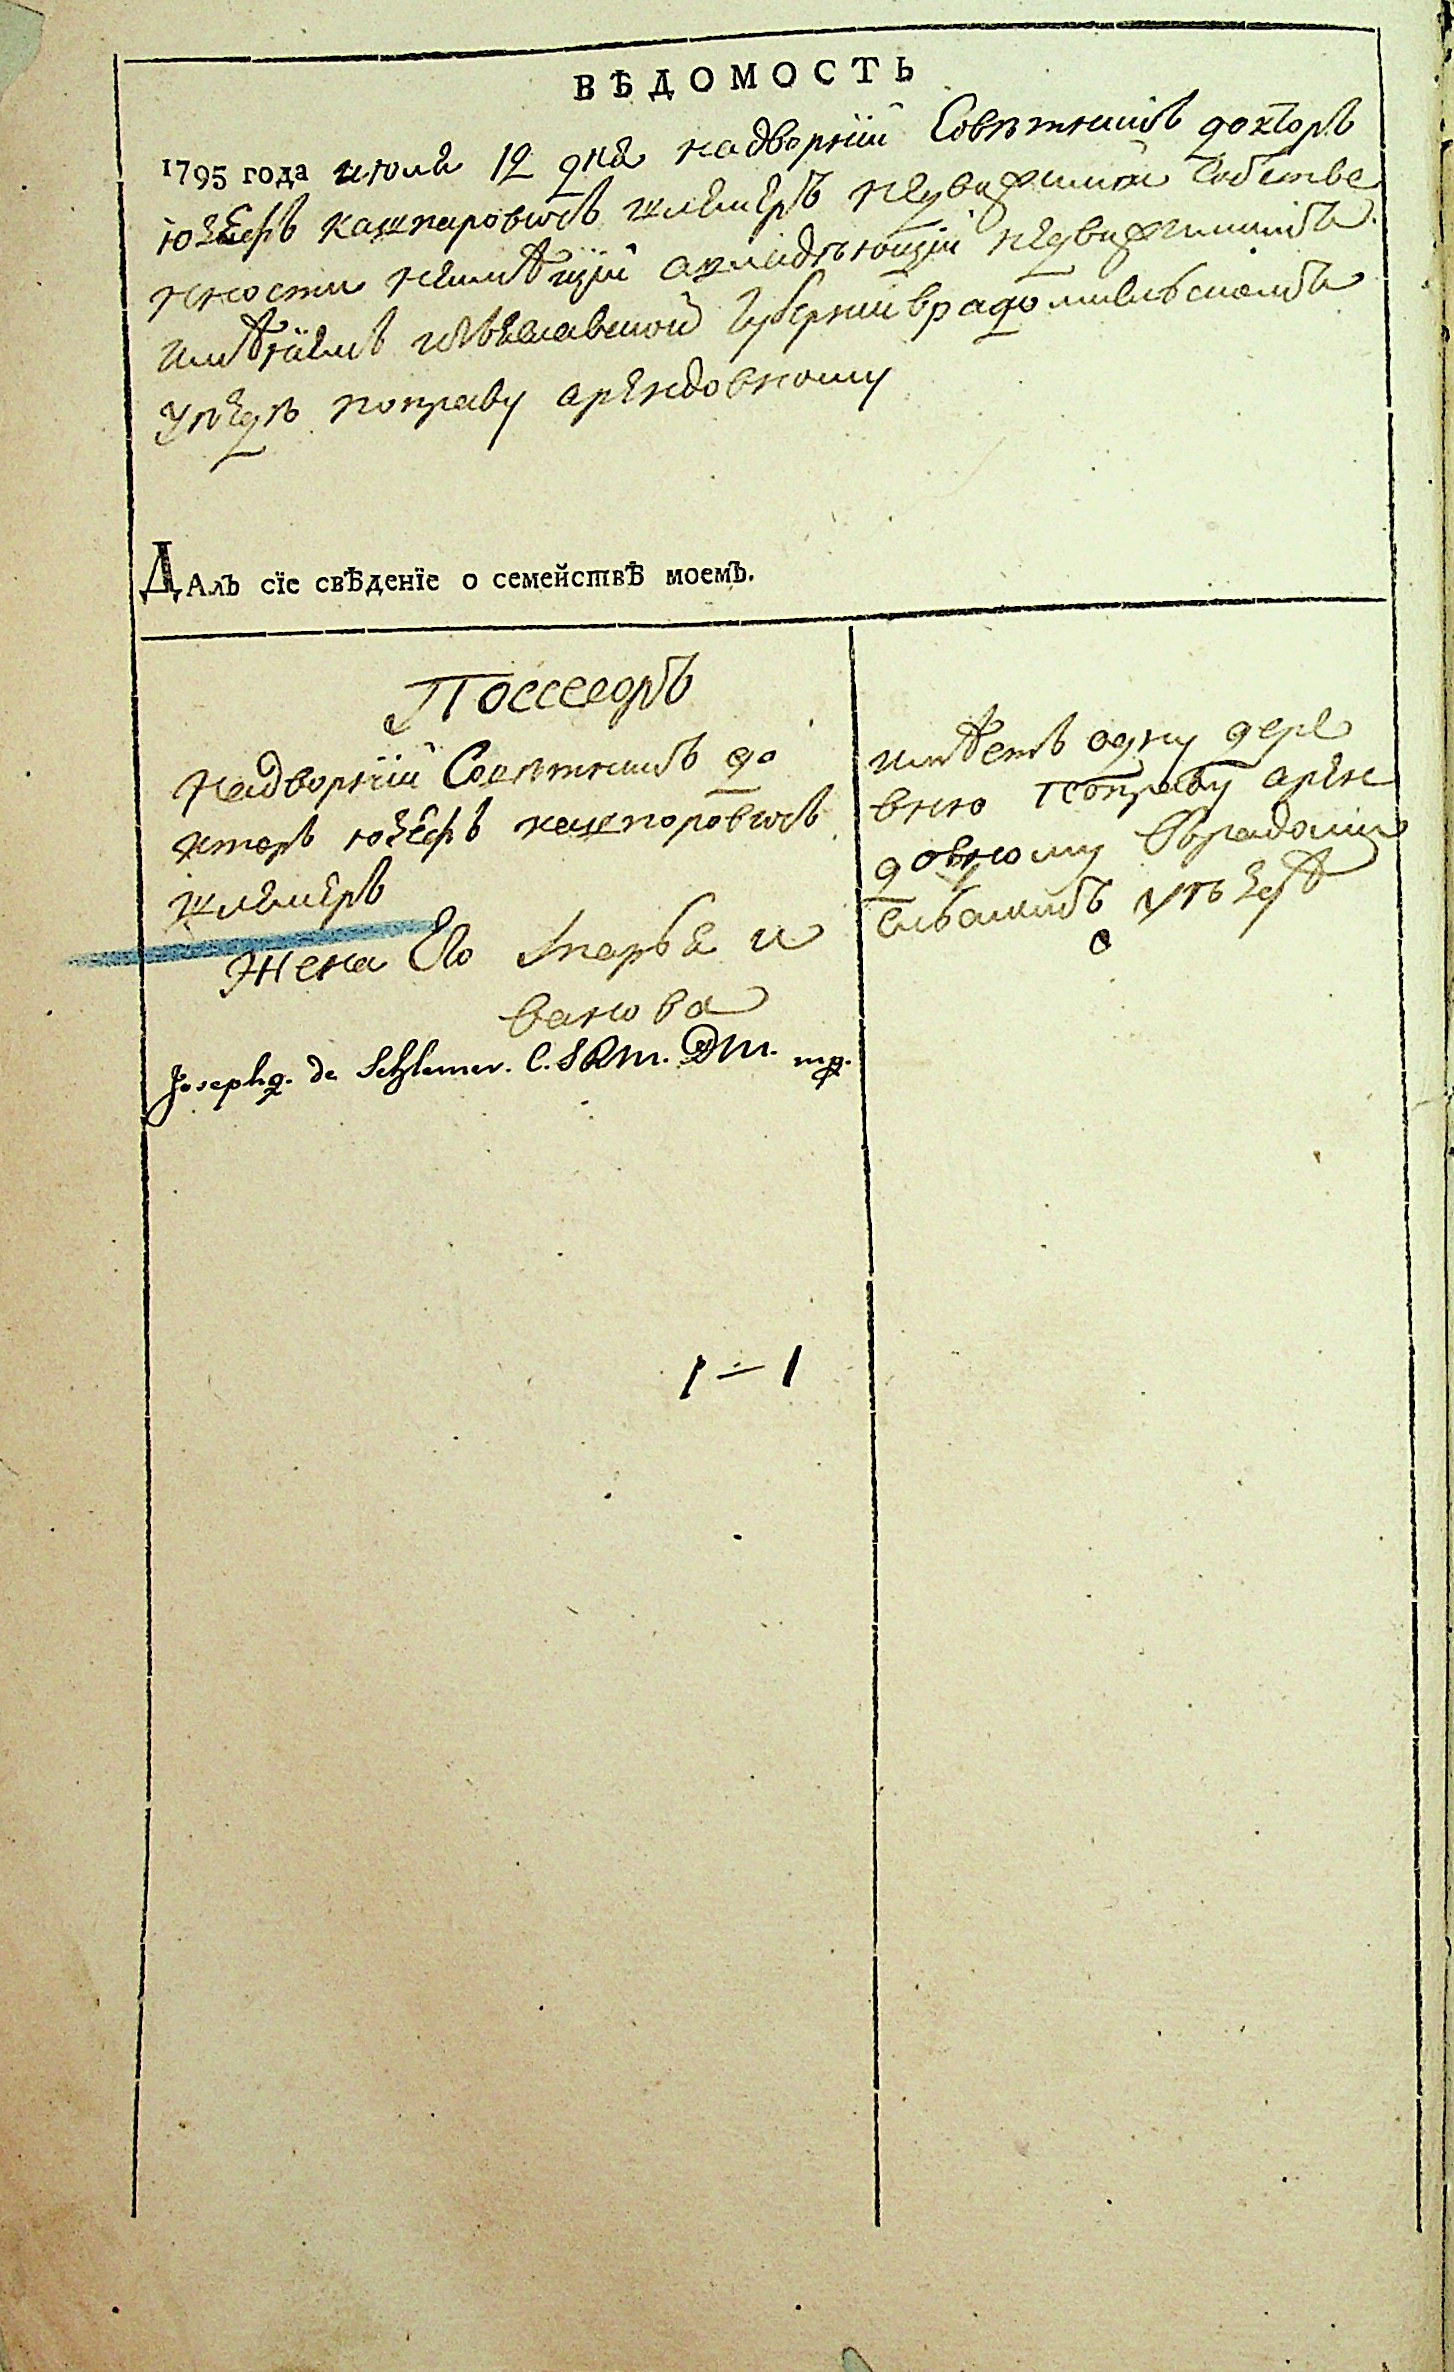 ВѢДОМОСТЬ
1795 года июля 12 дня надворнїй Совѣтникъ докторъ
юзефъ кашпаровичъ шлемеръ недвижимой собстве
нности неимѣющїй авладѣющїй недвижимимъ
имѣнїемъ губернїи врадомисльскомъ
уѣздѣ поправу арендовному
ДАлъ сїе свѣденїе о семействѣ моемъ.
Поссесоръ
надворнїй Совѣтникъ до
кторъ юзефъ кашпоровичъ
шлемеръ
Жена Его Марья и
ванова
Josephq. de Schlemer. C. S R M. D M. mp.
имѣетъ одну дере
вню поправу арен
довному Врадоми
сльскимъ уѣздѣ
0
1 – 1